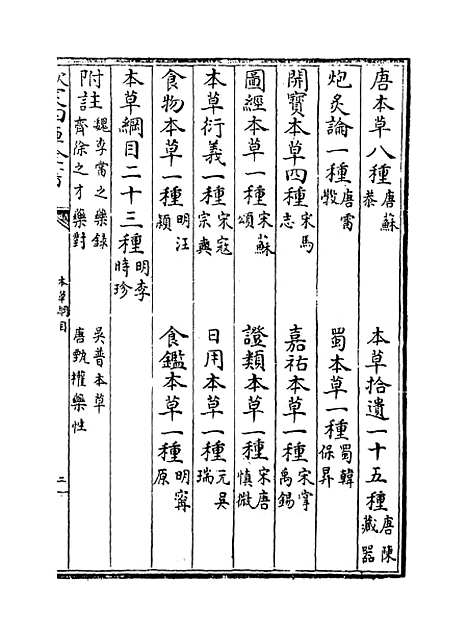 唐本草八種 唐蘇恭 本草拾遺一十五種 唐陳藏器
炮炙論一種 唐雷斆 蜀本草一種 蜀韓保昇
開寶本草四種 宋馬志 嘉祐本草一種 宋掌禹錫
圖經本草一種 宋蘇頌 證類本草一種 宋唐慎微
本草衍義一種 宋寇宗奭 日用本草一種 元吳瑞
食物本草一種 明汪穎 食鑑本草一種 明寗原
本草綱目二十三種 明李時珍
附註 魏李當之藥録 吳普本草
齊徐之才藥對 唐甄權藥性
本草綱目